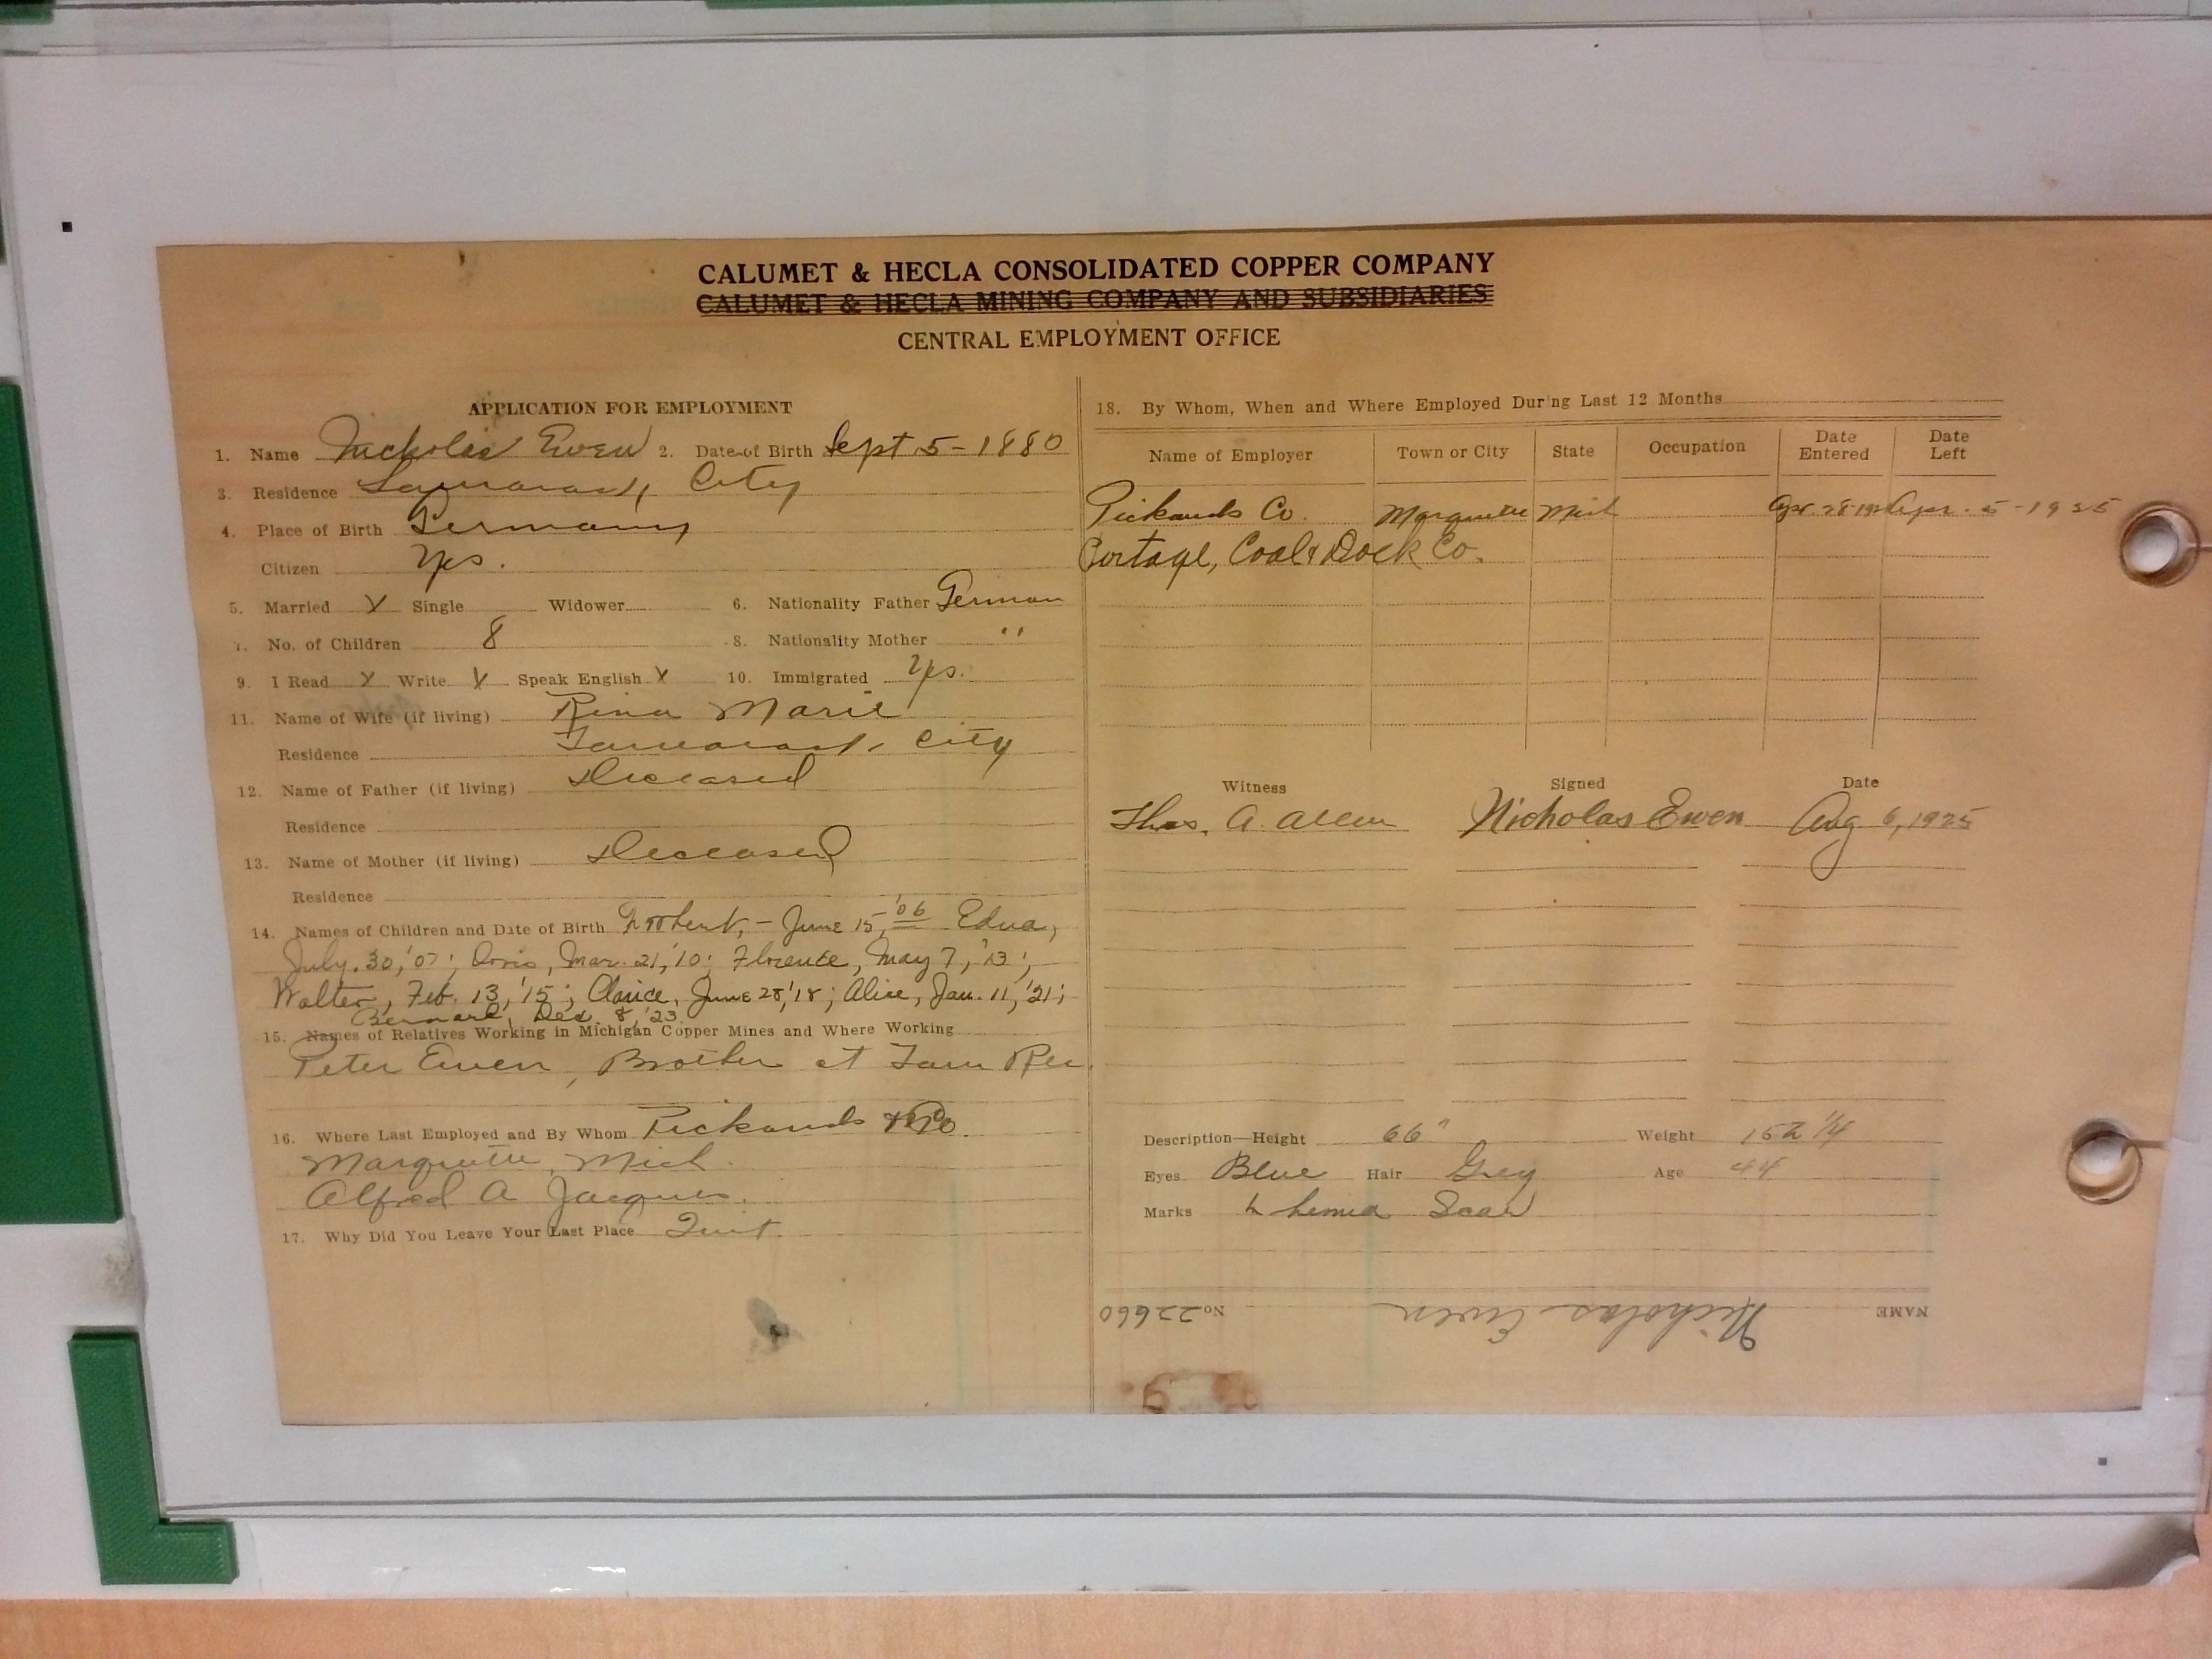 CALUMET & HECLA CONSOLIDATED COPPER COMPANY
CALUMET & HECLA MINING COMPANY AND SUBSIDIARIES
CENTRAL EMPLOYMENT OFFICE
APPLICATION FOR EMPLOYMENT
1. Name Nicholas Ewen 2. Date of Birth Sept 5-1880
3. Residence Tamarack City
4. Place of Birth Germany
Citizen Yes.
5. Married X Single Widower 6. Nationality Father German
7. No. of Children 8 8. Nationality Mother "
9. I Read X Write X Speak English X 10. Immigrated Yes.
11. Name of Wife (if living) Rina Marie
Residence Tamarack City
12. Name of Father (if living) Deceased
Residence
13. Name of Mother (if living) Deceased
Residence
14. Names of Children and Date of Birth - June 15, '06 Edna,
July. 30, '07; Doris, Mar. 21, '10; Florence, May 7, '13;
Walter, Feb. 13, '15; Clarice, June 28, '18; Alice, Jan. 11, '21;
Bernard, Dec. 8, '23
15. Names of Relatives Working in Michigan Copper Mines and Where Working
Peter Ewen, Brother at Tam Rec.
16. Where Last Employed and By Whom Pickands & Co.
Marquette, Mich.
Alfred A Jacques.
17. Why Did You Leave Your Last Place Quit.
18. By Whom, When and Where Employed During Last 12 Months
Name of Employer Town or City State Occupation Date Entered Date Left
Pickands Co. Marquette Mich Apr. 28 Apr. 5-1925
Portage, Coal & Dock Co.
Witness Signed Date
Thos. A. Allen Nicholas Ewen Aug 6, 1925
Description—Height 66" Weight 152 1/4
Eyes Blue Hair Grey Age 44
Marks Scar
NAME Nicholas Ewen No 22660